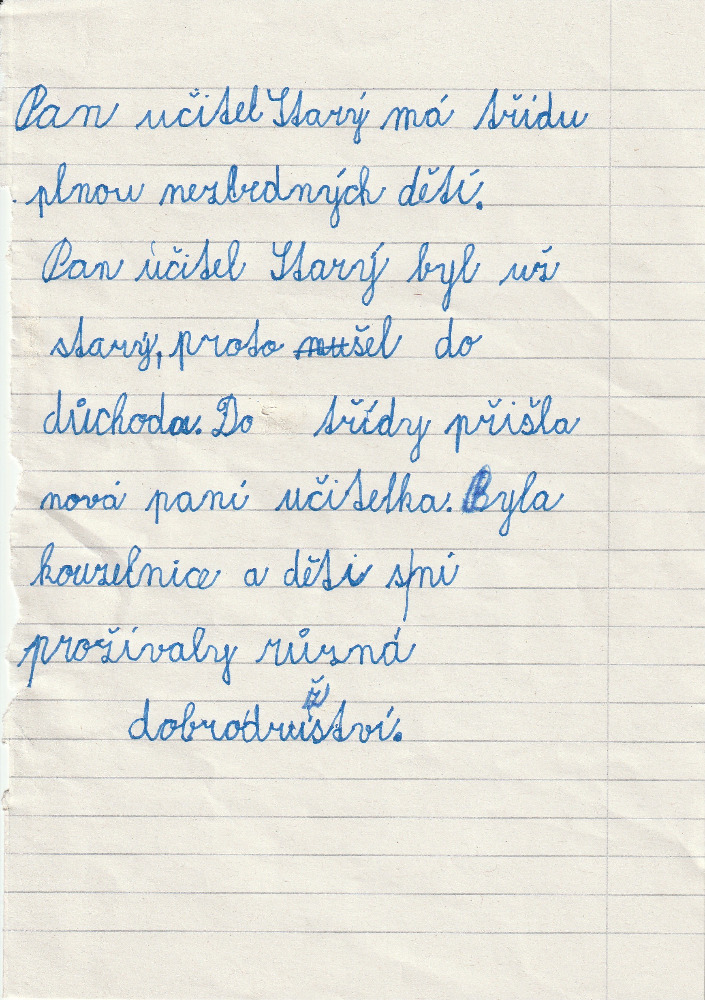 Pan učitel Starý má třídu
plnou nezbedných dětí.
Pan učitel Starý byl už
starý, proto šel do
důchoda. Do třídy přišla
nová paní učitelka. Byla
kouzelnice a děti s ní
prožívaly různá
dobrodružství.